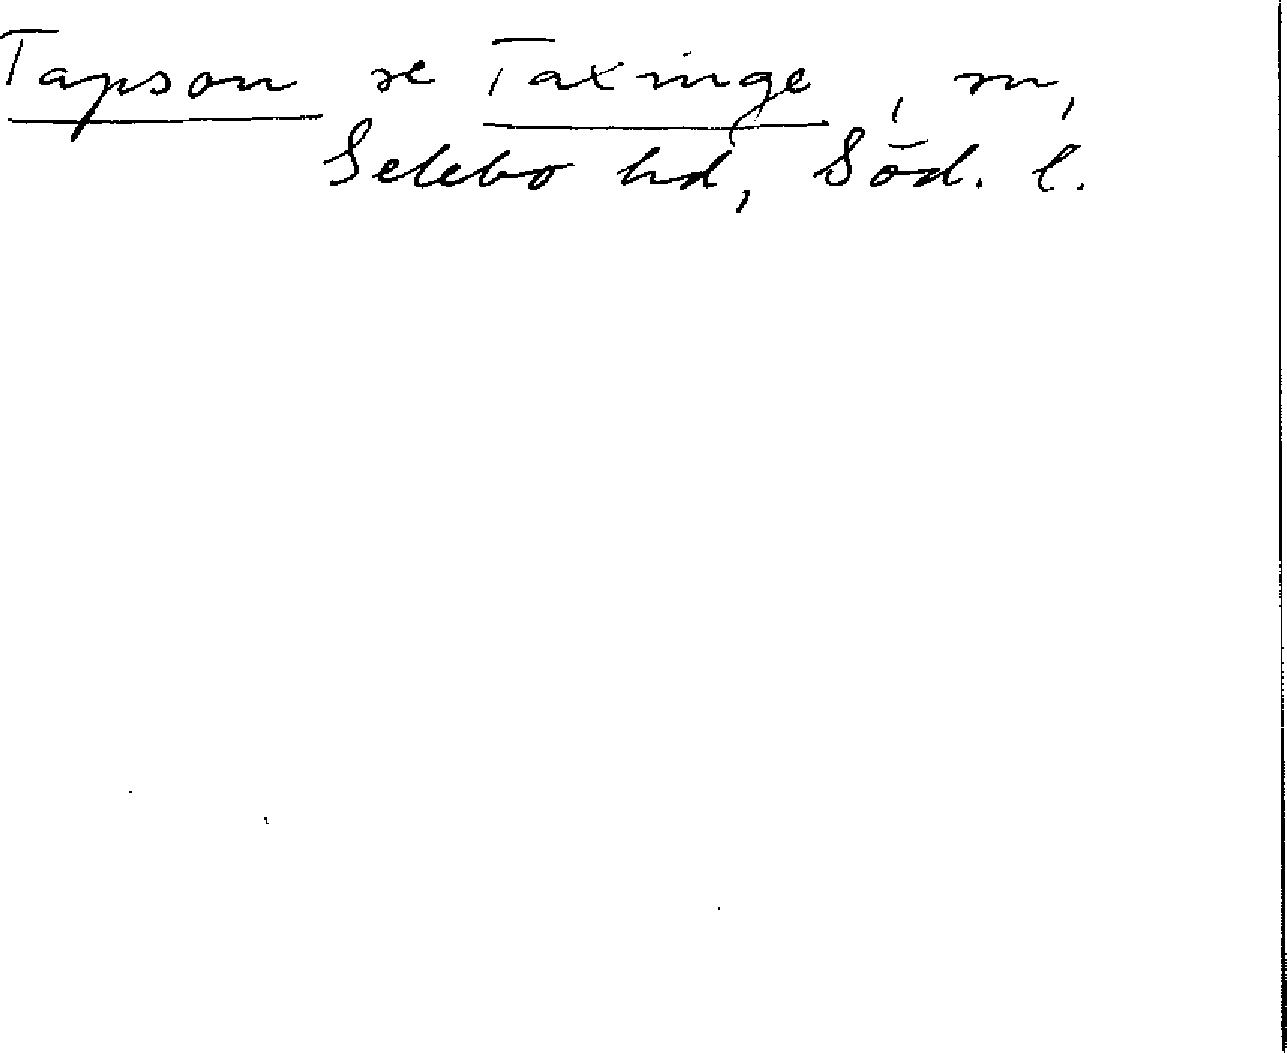 Tapson se Taxinge, sn,
Selebo hd, Söd. l.